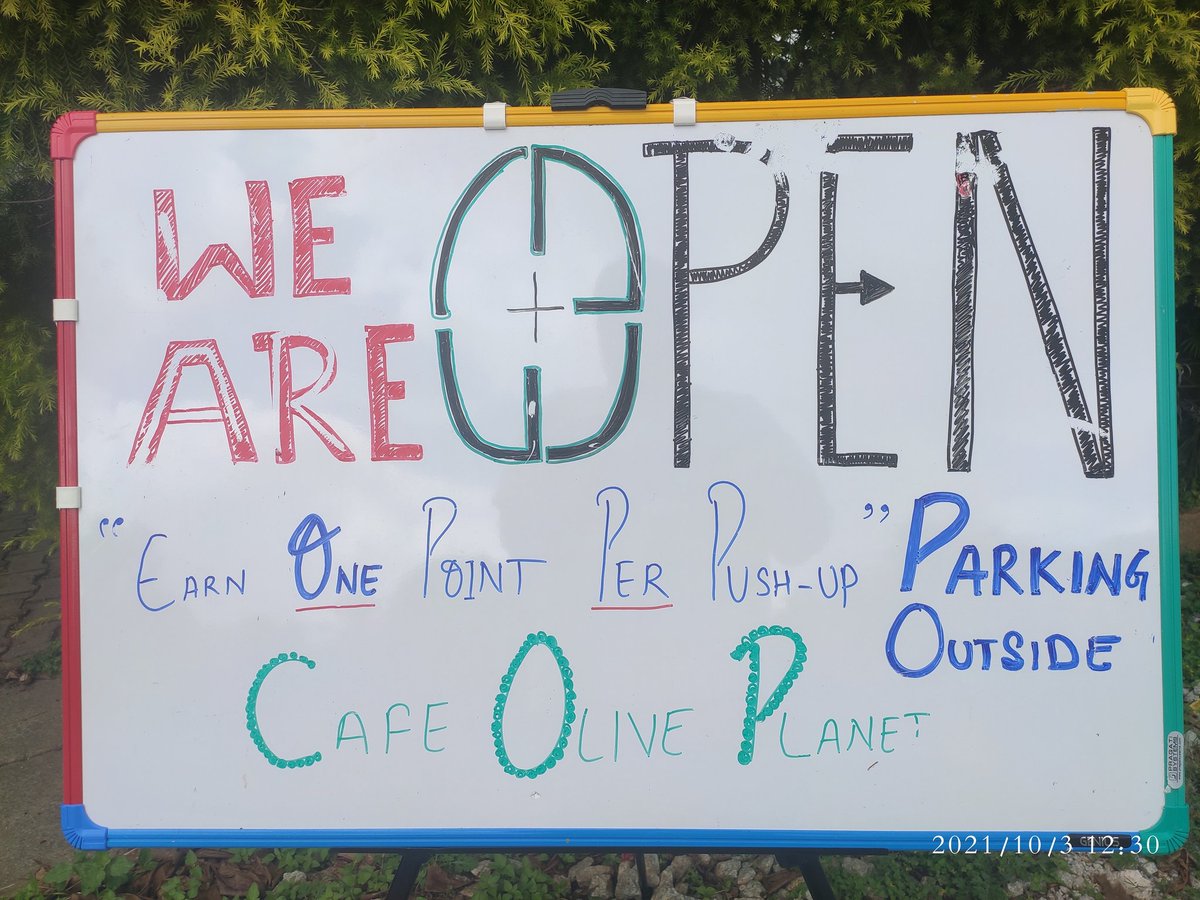 WE
ARE
OPEN
"EARN ONE POINT PER PUSH-UP" PARKING
OUTSIDE
CAFE OLIVE PLANET
PRAGATI
SYSTEMS
GENIUS
2021/10/3 12:30